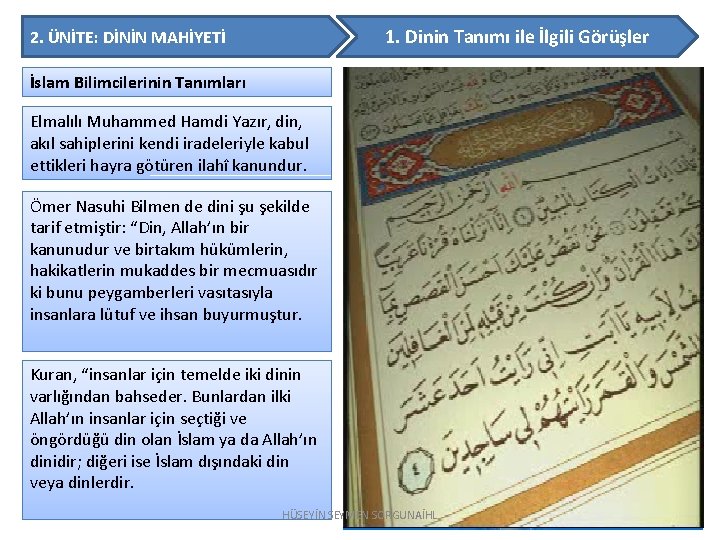 2. ÜNİTE: DİNİN MAHİYETİ
1. Dinin Tanımı ile İlgili Görüşler
İslam Bilimcilerinin Tanımları
Elmalılı Muhammed Hamdi Yazır, din,
akıl sahiplerini kendi iradeleriyle kabul
ettikleri hayra götüren ilahî kanundur.
Ömer Nasuhi Bilmen de dini şu şekilde
tarif etmiştir: “Din, Allah’ın bir
kanunudur ve birtakım hükümlerin,
hakikatlerin mukaddes bir mecmuasıdır
ki bunu peygamberleri vasıtasıyla
insanlara lütuf ve ihsan buyurmuştur.
Kuran, “insanlar için temelde iki dinin
varlığından bahseder. Bunlardan ilki
Allah’ın insanlar için seçtiği ve
öngördüğü din olan İslam ya da Allah’ın
dinidir; diğeri ise İslam dışındaki din
veya dinlerdir.
الله الرحمن الرحيم
الكتاب المبين
نحن نقص عليك احسن القصص بما
هذا القران وان كنت من قبله لمن الغافلين
يا ابت اني رايت احد عشر
والشمس والقمر رايتهم لي ساجدين ٤
HÜSEYİN SEYMEN SORGUNAİHL